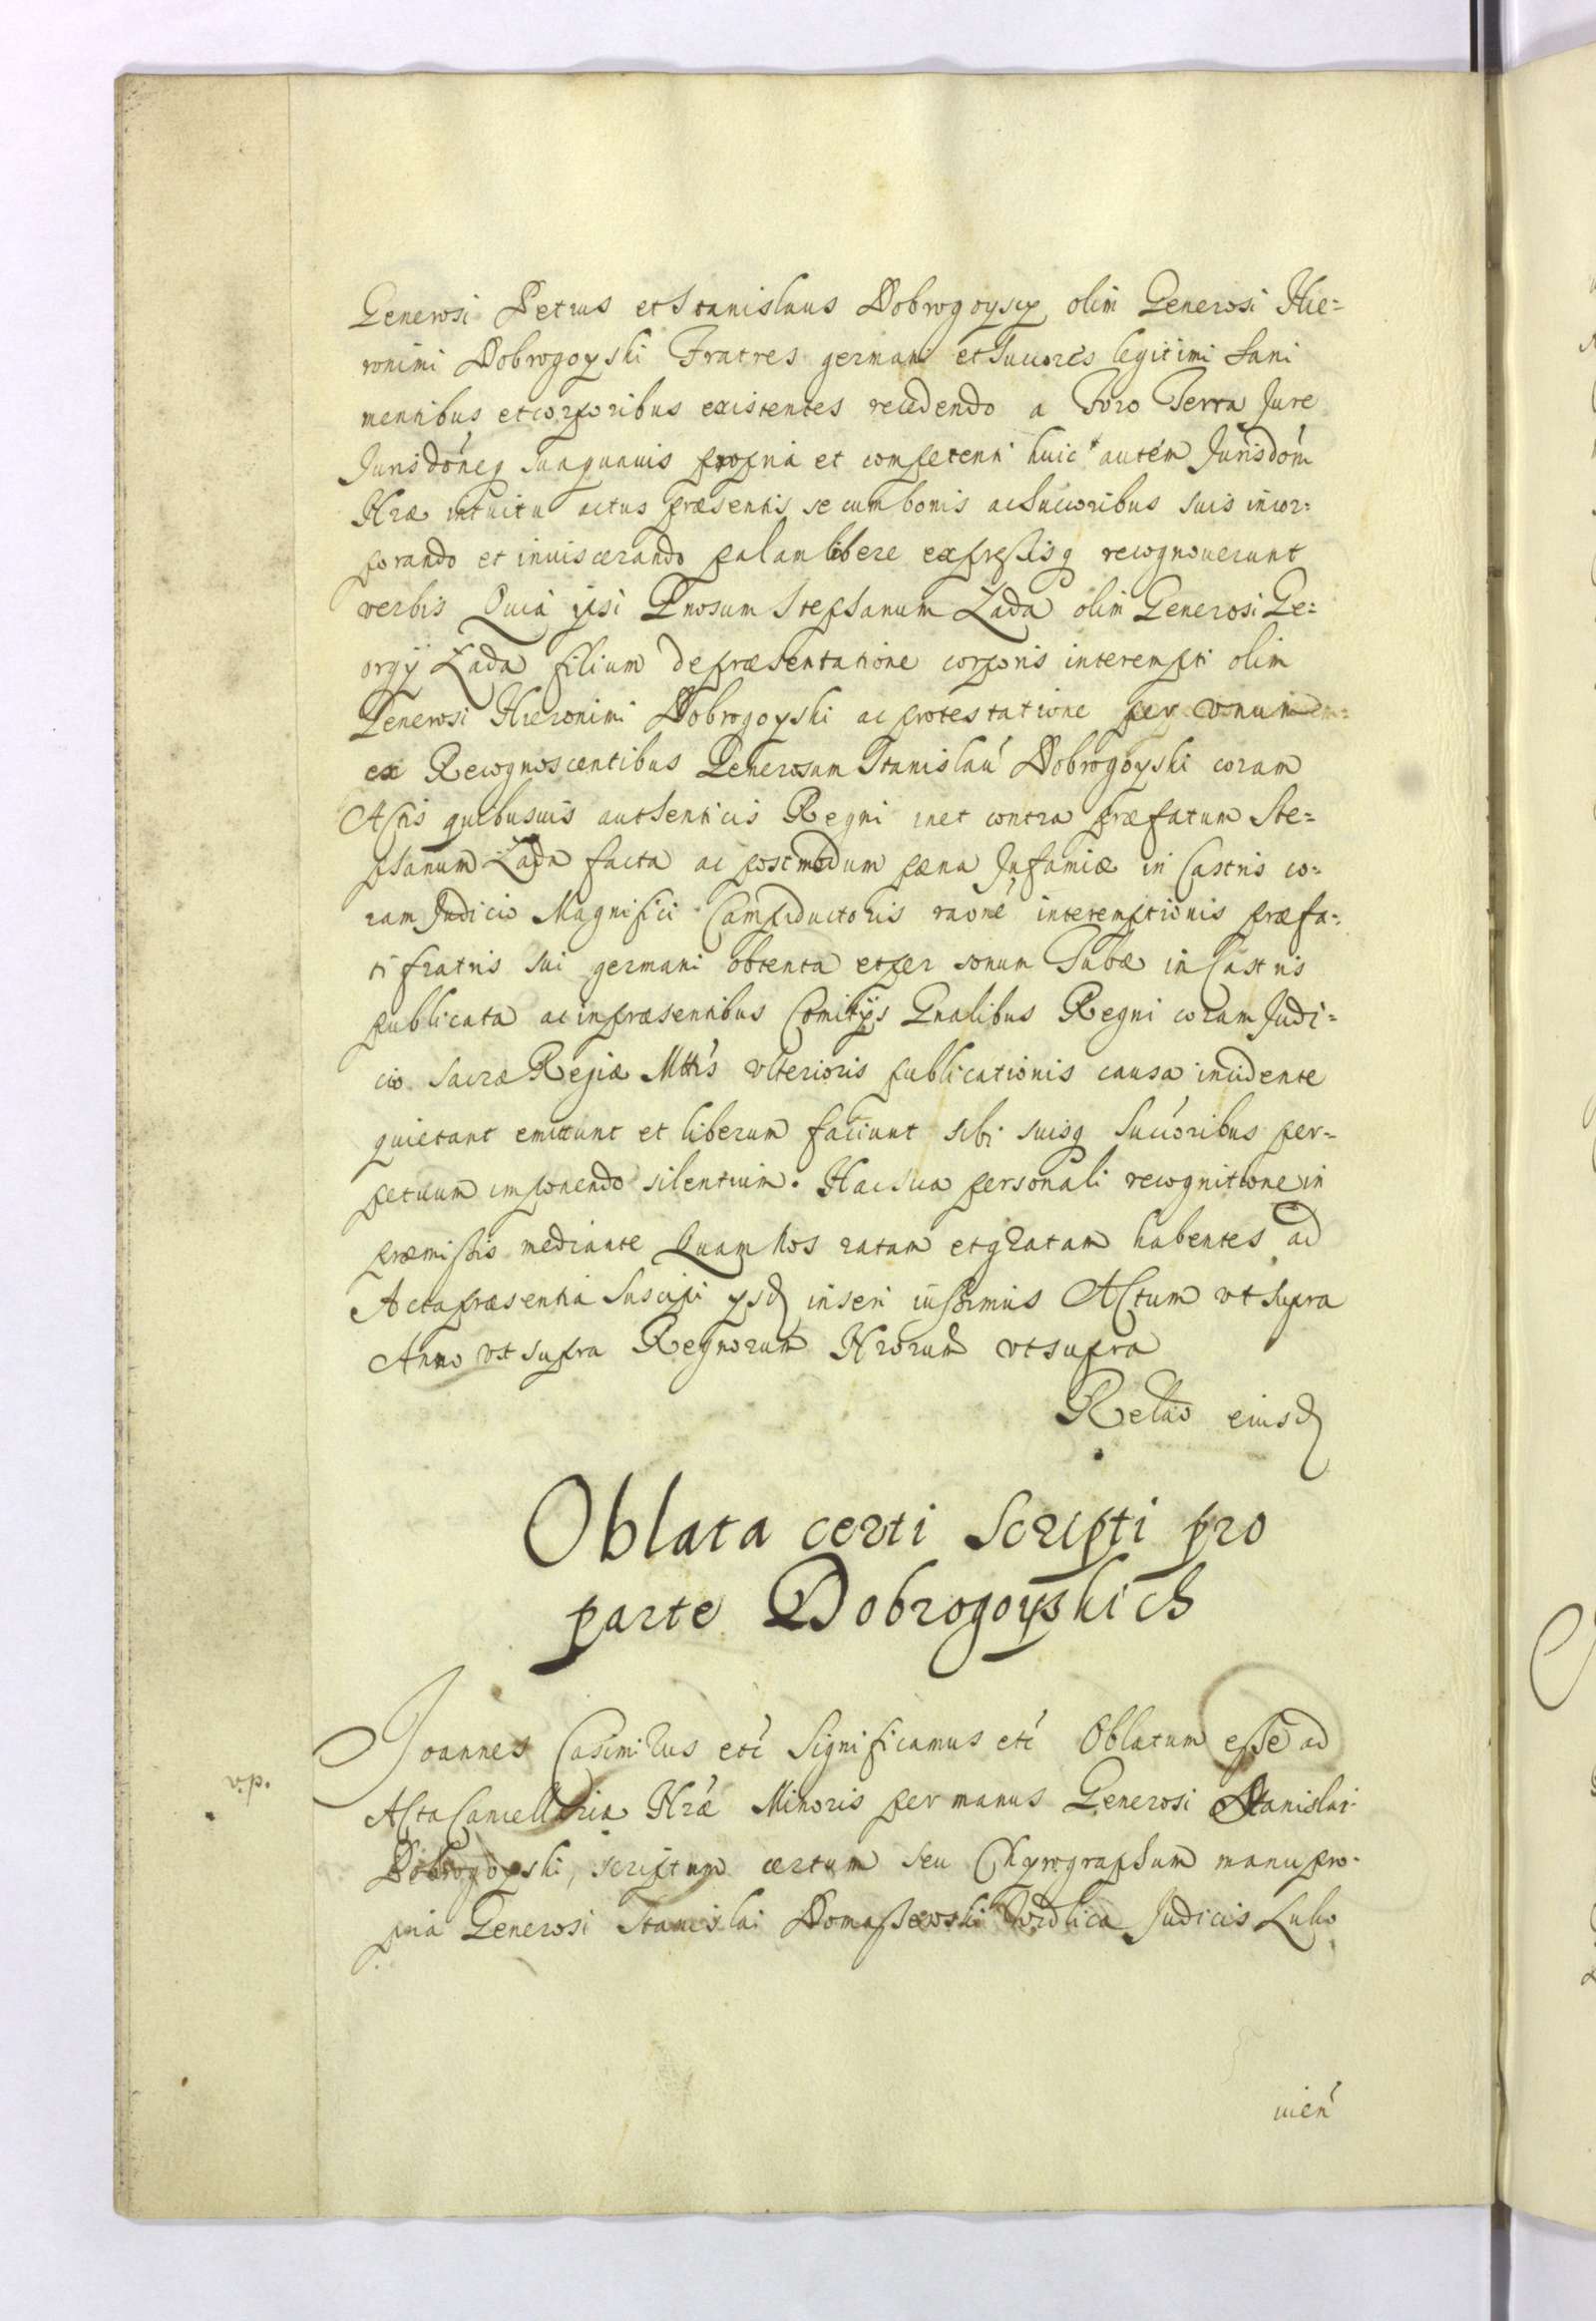 Generosi Petrus et Stanislaus Dobrogoyscy olim Generosi Hie=
ronimi Dobrogoyski Fratres germani et Succores legitimi sani
mentibus et corporibus existentes recedendo a Foro Terra Jure
Jurisdóneq suaquauis propria et competenti huic autém Jurisdóni
Hræ intuitu actus præsentis se cum bonis ac Succoribus suis incor=
porando et inuiscerando palam libere expressisq recognouerunt
verbis Quia ipsi Gnosum Stephanum Łada olim Generosi Ge=
orgÿ Łada filium de præsentatione corporis interempti olim
Generosi Hieronimi Dobrogoyski ac protestatione per vnum
ex Recognoscentibus Generosum Stanislaú Dobrogoyski coram
Actis quibusuis authenticis Regni inet contra præfatum Ste=
phanum Łada facta ac postmodum pæna Infamiæ in Castris co=
ram Judicio Magnifici Campiductoris raoné interemptionis præfa=
ti fratris sui germani obtenta et per sonum Tubæ in Castris
publicata ac in præsentibus Comitÿs Gnalibus Regni coram Judi=
cio Sacræ Regiæ Mttis vlterioris publicationis causa incidente
quietant emittunt et liberum faciunt sibi suisq Succóribus per=
petuum imponendo silentium. Hac sua personali recognitione in
præmissis mediante Quam Nos ratam et gratam habentes ad
Acta præsentia Suscipi ysd inseri iussimus Actum vt supra
Anno vt supra Regnorum Nrorum vt supra
Relaó eiusd
Oblata certi Scripti pro
parte Dobrogoyskich
Joannes Casimirus etć Significamus etć Oblatum esse ad
v.p.
Acta Cancellariæ Hræ Minoris per manus Generosi Stanislai
Dobrogoyski, scriptum certum seu Chyrographum manu pro=
pria Generosi Stanislai Domaszewski Judicis Luko
uień